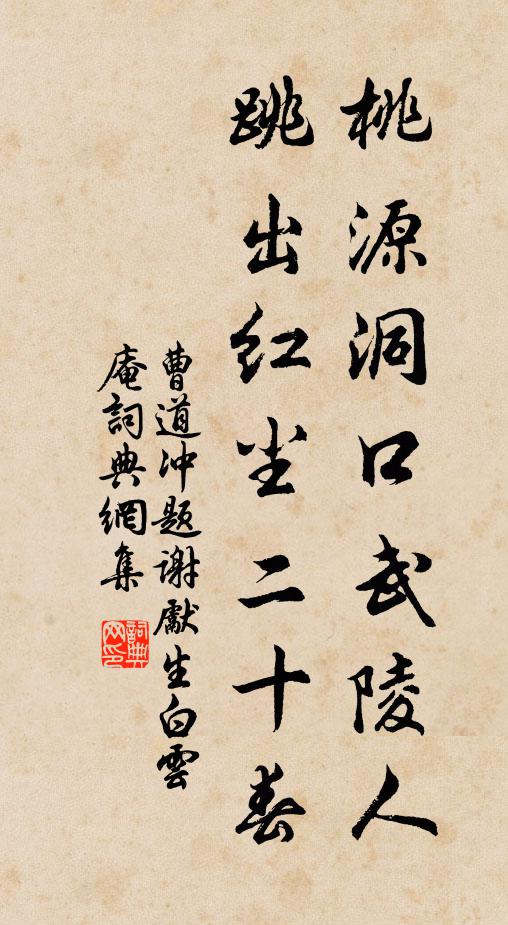 桃源洞口武陵人
跳出红尘二十春
曹道冲题謝獻生白雲
庵詞典網集
詞典网印